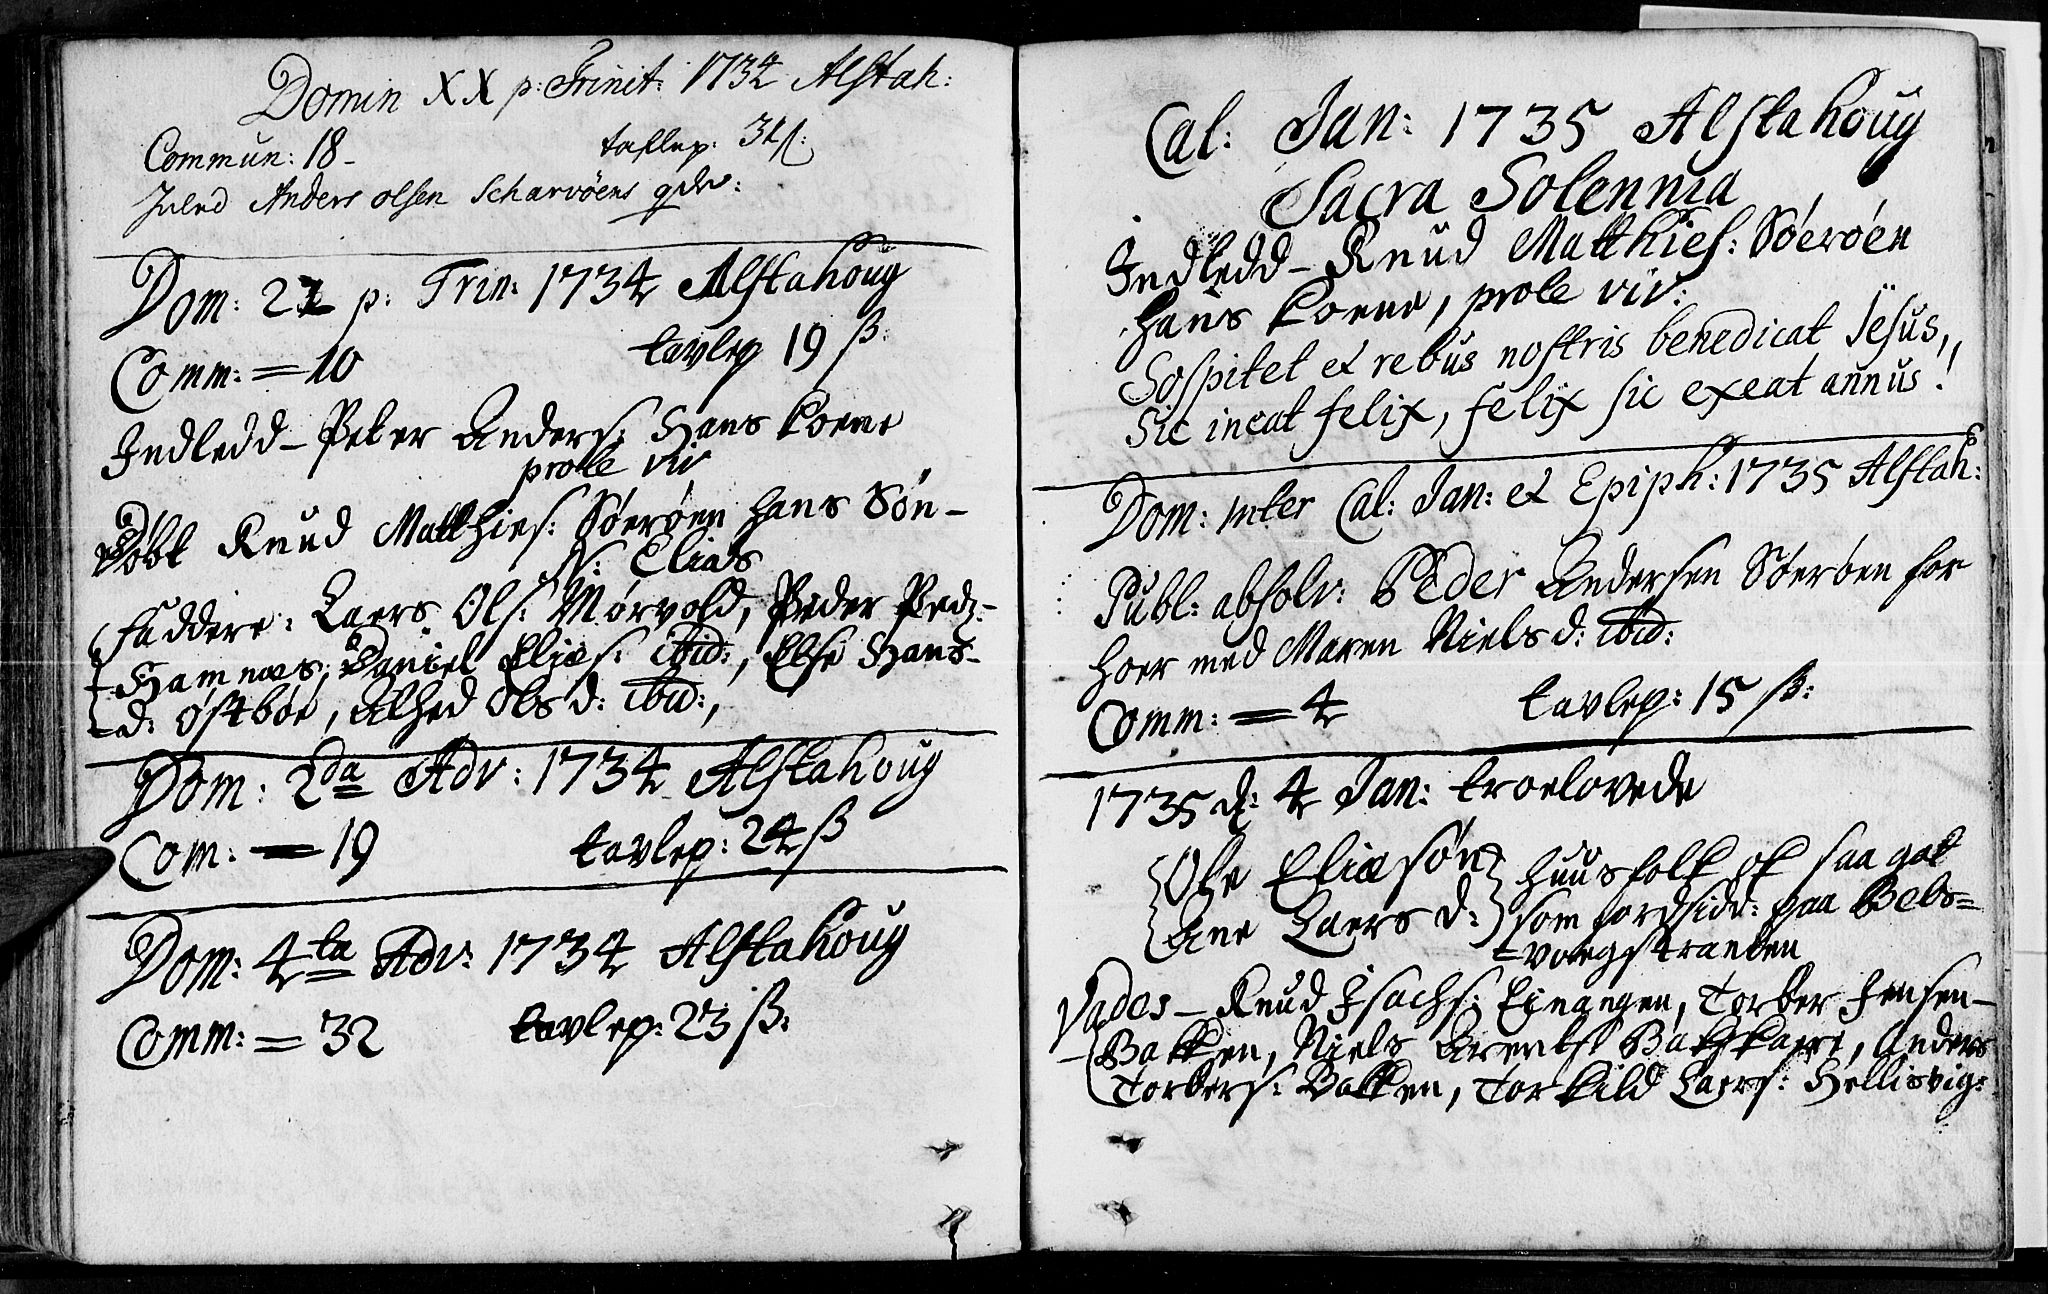 Domin XX p: Trinit: 1734 Alstah:
Commun: 18 - taflep: 31 ß:
Inled Anders olsen Scharvöens qde:
Dom: 21 p: Trin: 1734 Alstahoug
Comm: = 10 tavlep 19 ß:
Indledd - Peter Anders: Hans Kone
prole viv
Döbt Knud Matthies: Söeröen hans Sön -
N: Elias
Faddere: Laers Ols: Mörvold, Peder Peds:-
Hamnæs, Daniel Elias: ibid:, Else Hans-
d: Östböe, Alhed Ols d: ibid:,
Dom: 2da Adv: 1734 Alstahoug
Com: = 19 tavlep: 24 ß
Dom: 4ta Adv: 1734 Alstahoug
Comm: = 32 tavlep: 23 ß:
Cal: Jan: 1735 Alstahoug
Sacra Solennia
Indledd - Knud Matthies: Söeröen
Hans Kone, prole viv:
Sospitet et rebus nostris benedicat Jesus,,
Sic ineat felix, felix sic exeat annus!
Dom: inter Cal: Jan: et Epiph: 1735 Alstah:
Publ: absolv: Peder Andersen Söeröen for
hoer med Maren Niels d: ibid:
Comm: = 4 tavlep: 15 ß:
1735 d: 4 Jan: troelovede
Ole Eliæsön huusfolk ok saa got
Ane Laers d: som jordsidd: paa Bels=
=vaagstranden
Vades - Knud Isachs: Einangen, Torber Jensen -
Bakken, Niels Arents: , Anders
Torbers: Bakken, Torkild Laers: Hellisvig: